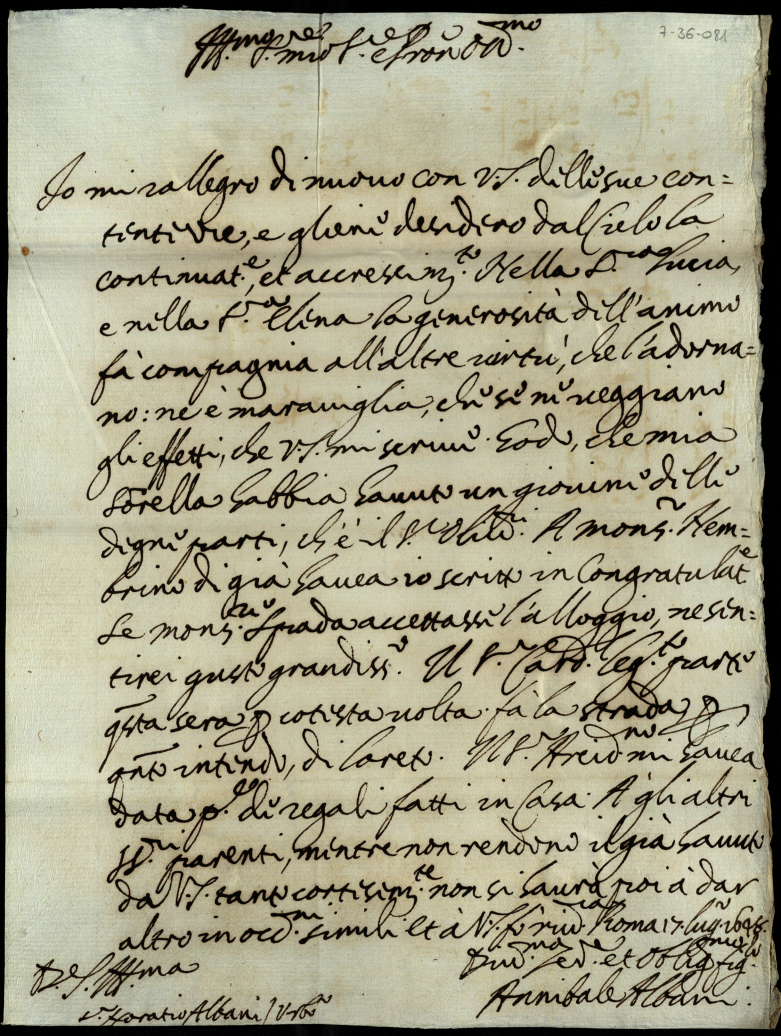 7-36-081
Ill.mo S.r mio S.re e Pron Oss.mo
Io mi rallegro di nuovo con V.S. delle sue con=
tentezze, e gliene desidero dal Cielo la
continuat.e, et accressim.to. Nella S.ra Lucia,
e nella S.ra Elena la generosità dell'animo
fà compagnia all'altre virtù, che l'adorna=
no: ne è maraviglia, che se ne veggiano
gli effetti, che V.S. mi scrive. Godo, che mia
Sorella habbia havuto un giovine delle
degne parti, ch'è il S.r A Mons.r Nem=
brino di già havea io scritto in Congratulat.e
Se mons.r Spada accettasse l'alloggio, ne sen=
tirei gusto grandiss.o. Il S.r Card. Leg.to parte
qsta sera p cotesta volta. fà la strada p
qnto intendo, di Loreto. Il S.r mi havea
data p.te de regali fatti in Casa. A gli altri
SS.ri parenti, mentre non rendono il già havuto
da V.S. tanto cortesem.te non si haurà poi à dar
altro in occ.ni simili. Et à V.S. fò riv.za Roma 17. lug.o
Di V.S. Ill.ma
et Oblig.mo fig.lo
Annibale Albani.
S.r Horatio Albani / Urb.o